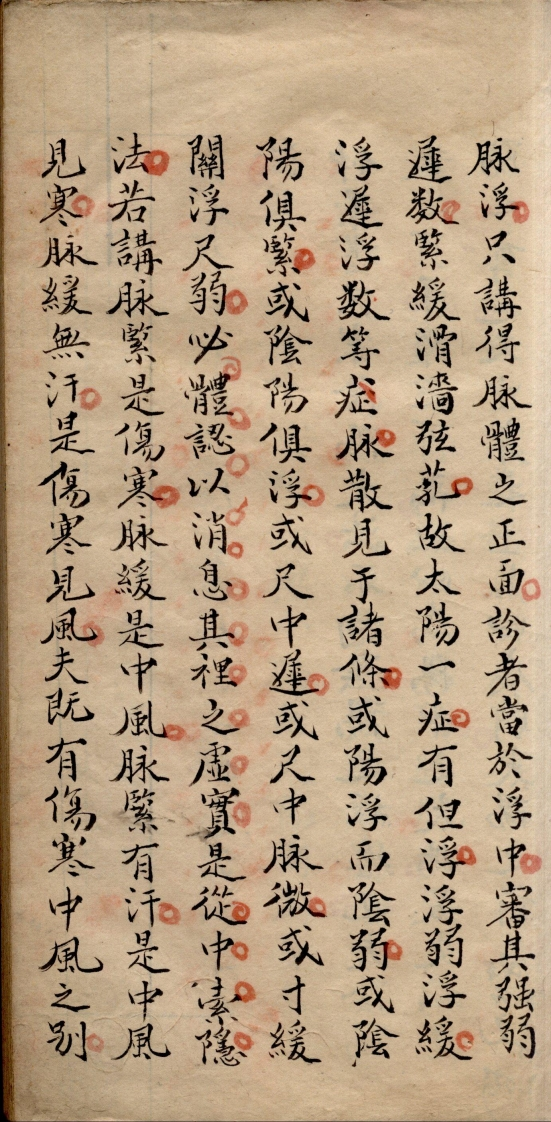 脉浮只講得脉體之正面診者當於浮中審其强弱
遲数緊緩滑濇弦芤故太陽一症有但浮浮弱浮緩
浮遲浮数等症脉散見于諸條或陽浮而陰弱或陰
陽俱緊或陰陽俱浮或尺中遲或尺中脉微或寸緩
關浮尺弱必體認以消息其裡之虛實是從中索隱
法若講脉緊是傷寒脉緩是中風脉緊有汗是中風
見寒脉緩無汗是傷寒見風夫既有傷寒中風之别